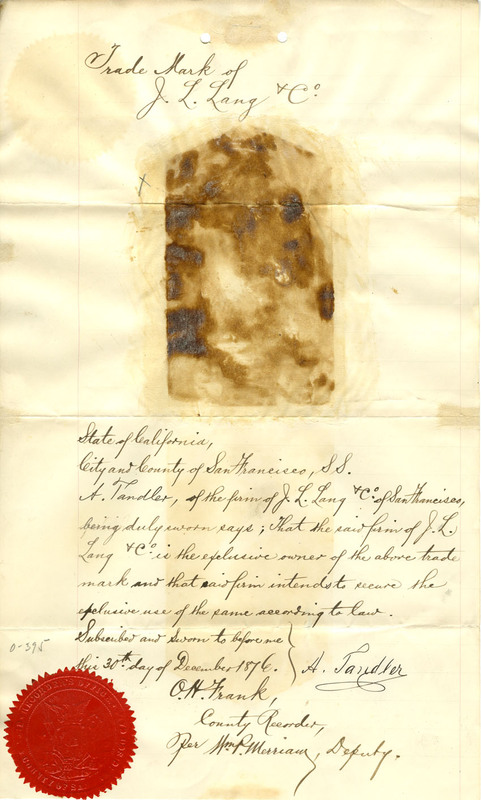 Trade Mark of
J. L. Lang & Co.
State of California,
City and County of San Francisco, S.S.
A. Tandler, of the firm of J. L. Lang & Co. of San Francisco,
being duly sworn says; That the said firm of J. L.
Lang & Co. is the exclusive owner of the above trade
mark and that said firm intends to secure the
exclusive use of the same according to law.
Subscribed and sworn to before me
this 30th day of December 1876.
A. Tandler
O. H. Frank,
County Recorder,
Per Wm. P. Merriam, Deputy.
0-395